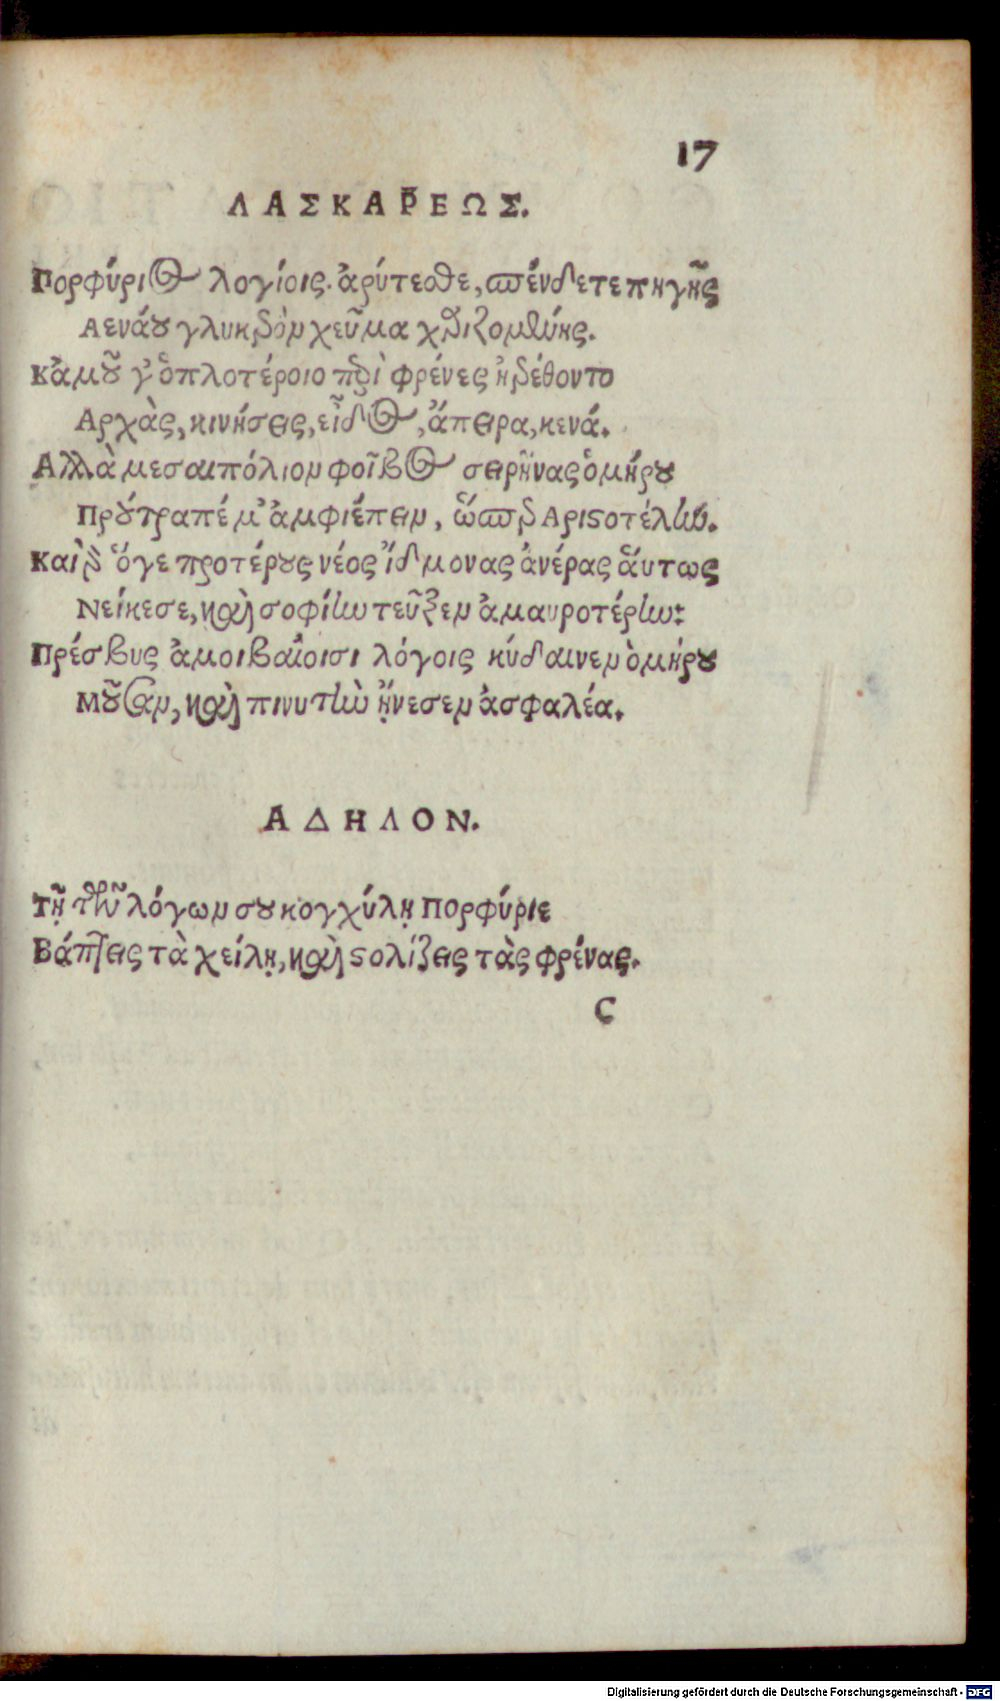 17
ΛΑΣΚΑΡΕΩΣ.
Πορφύριος λογίοις. ἀρύτεσθε, σπένδετε πηγῆς
Αενάου γλυκερὸν χεῦμα χρηιζομένης.
Κἀμοῦ γὸ ὁπλοτέροιο περὶ φρένες ἠρέθοντο
Αρχὰς, κινήσεις, εἶδος, ἄπειρα, κενά.
Αλλὰ μεσαιπόλιον φοῖβος σειρῆνας ὁμήρου
Προύτραπέ μ' ἀμφιέπειν, ὥσπερ Αριστοτέλην.
Καὶ ὅγε προτέρους νέος ἴδμονας ἀνέρας αὕτως
Νείκεσε, καὶ σοφίην τεῦξεν ἀμαυροτέρην:
Πρέσβυς ἀμοιβαίοισι λόγοις κύδαινεν ὁμήρου
Μοῦσαν, καὶ πινυτὴν ᾔνεσεν ἀσφαλέα.
ΑΔΗΛΟΝ.
Τῇ τῶν λόγων σου κογχύλῃ Πορφύριε
Βάπτεις τὰ χείλη, καὶ στολίζεις τὰς φρένας.
C
Digitalisierung gefördert durch die Deutsche Forschungsgemeinschaft - DFG